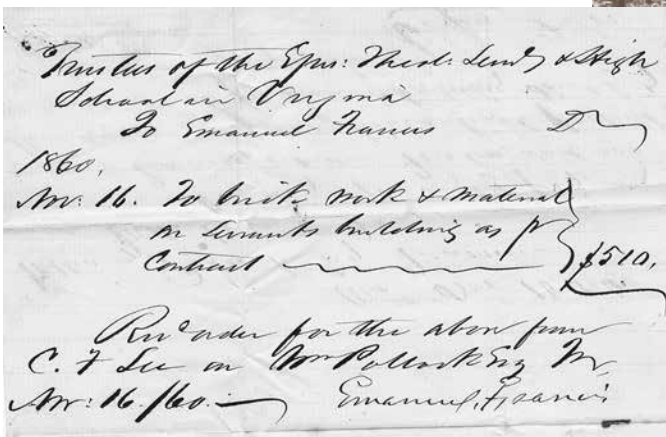 Trustees of the Epis: Theol: Semy & High
School in Virginia
To Emanuel Francis Dr
1860.
Nov: 16. To brick work & material
on Servants building as pr
Contract $510.
Recd order for the above from
C. F Lee on Wm Pollock Esq Tr.
Nov: 16/60. Emanuel, Francis